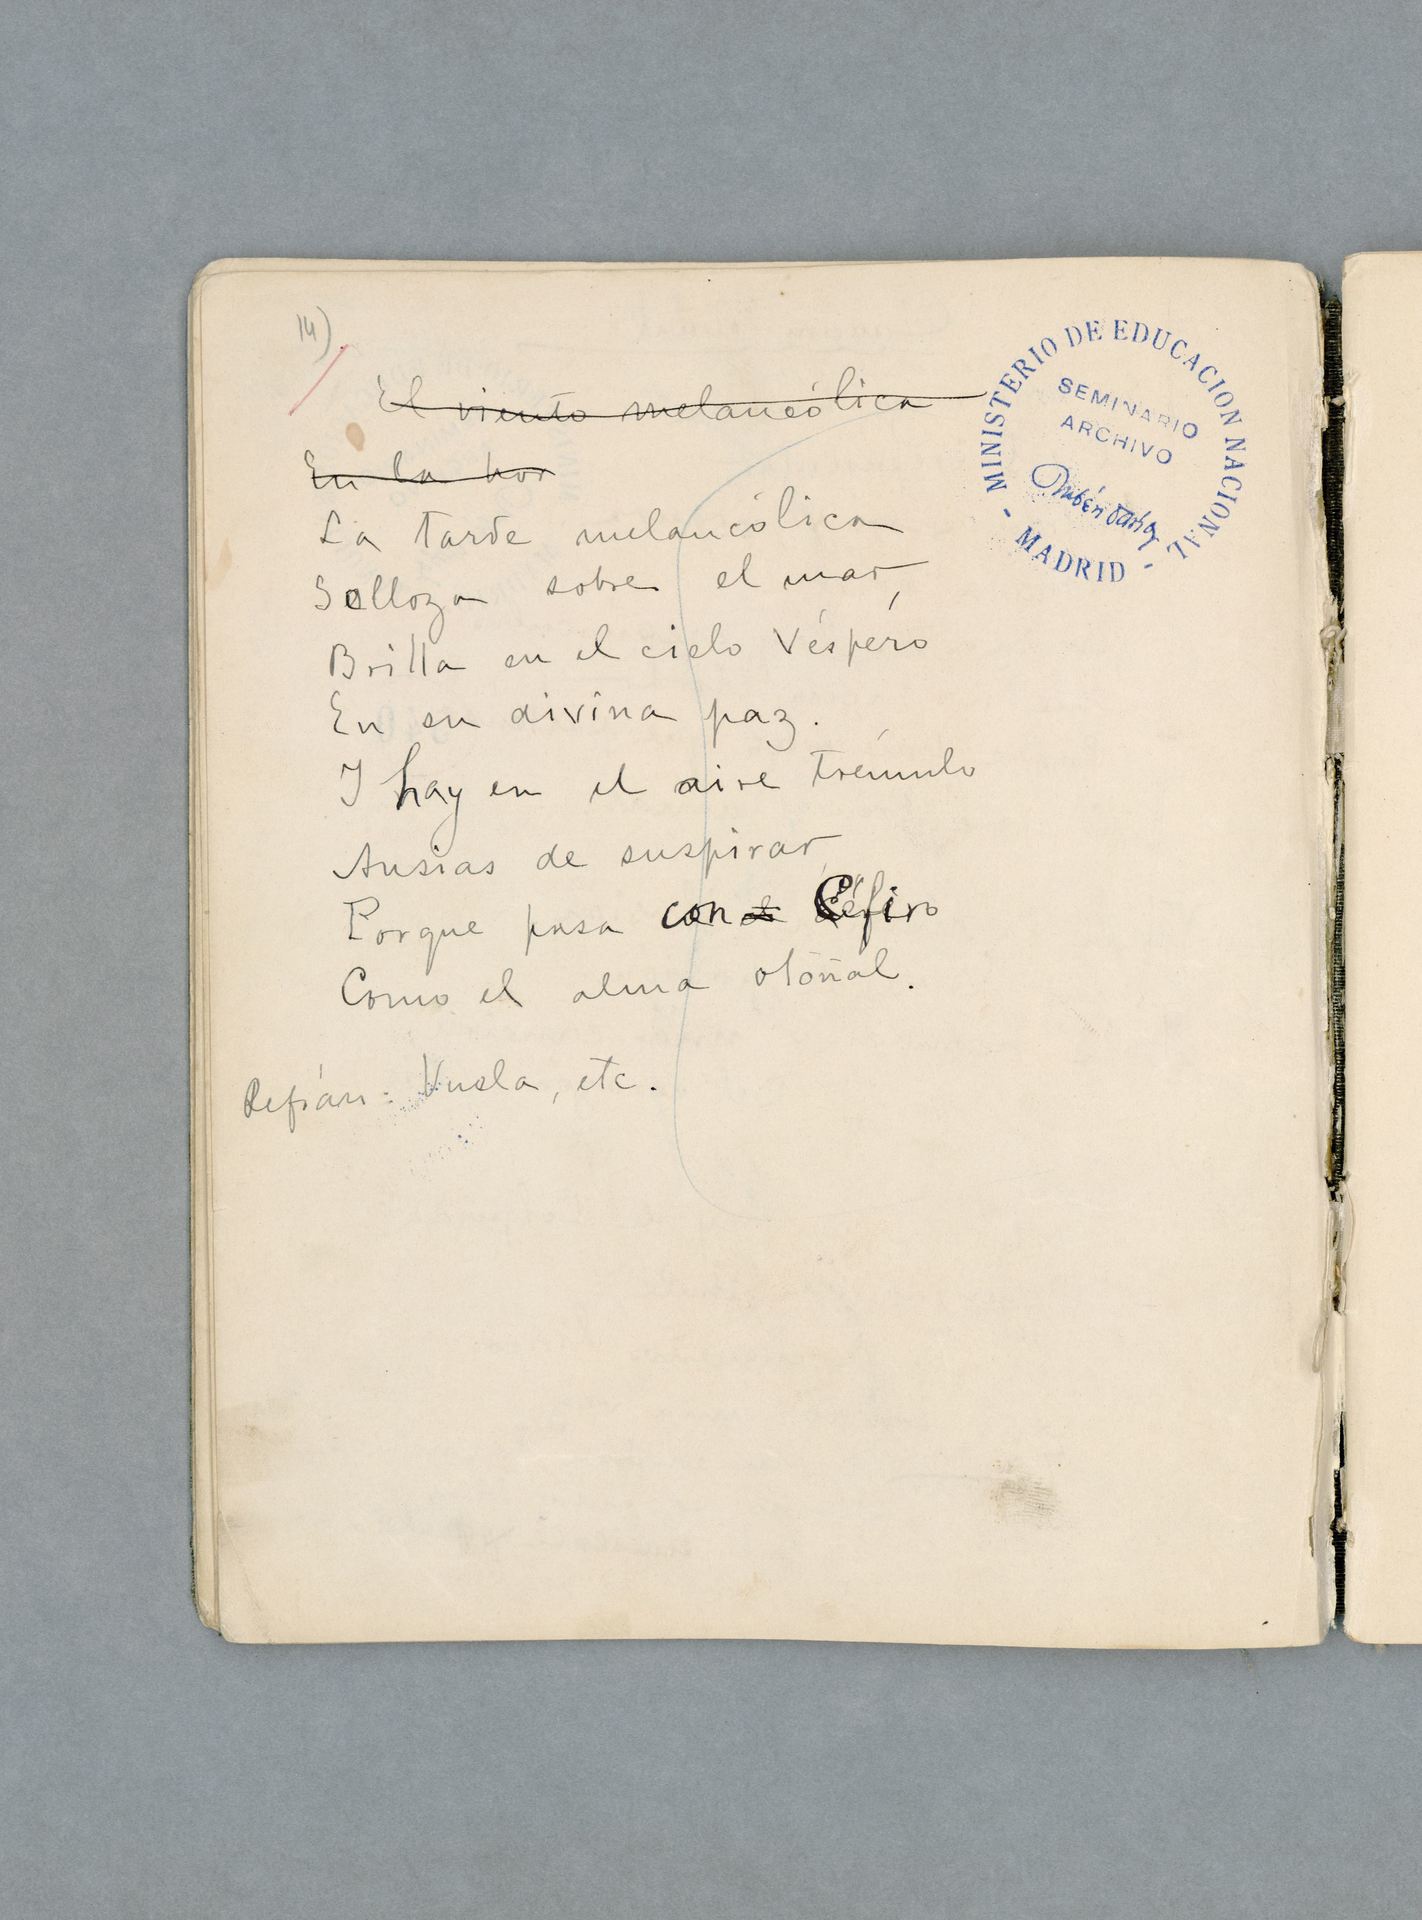 14)
MINISTERIO DE EDUCACION NACIONAL
- MADRID -
SEMINARIO
ARCHIVO
Rubén Darío
El viento melancólico
En la hor
La tarde melancólica
Solloza sobre el mar,
Brilla en el cielo Véspero
En su divina paz.
I hay en el aire trémulo
Ansias de suspirar,
Porque pasa con el Céfiro
Como el alma otoñal.
Refrán: Vuela, etc.